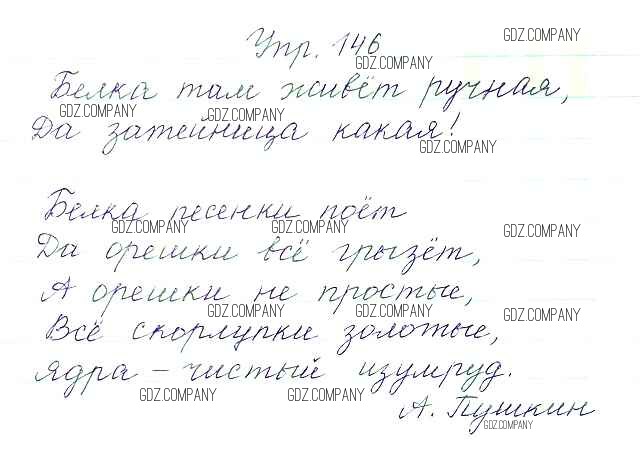 Упр. 146
GDZ.COMPANY
GDZ.COMPANY
Белка там живёт ручная,
GDZ.COMPANY GDZ.COMPANY
Да затейница какая!
GDZ.COMPANY
Белка песенки поёт
GDZ.COMPANY GDZ.COMPANY GDZ.COMPANY
Да орешки всё грызёт,
А орешки не простые,
GDZ.COMPANY GDZ.COMPANY GDZ.COMPANY
Всё скорлупки золотые,
Ядра – чистый изумруд.
GDZ.COMPANY GDZ.COMPANY
А. Пушкин
GDZ.COMPANY